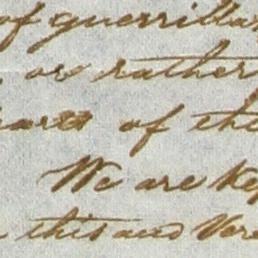 of guerrillas
or rather
of the
We are kep
this and Vere